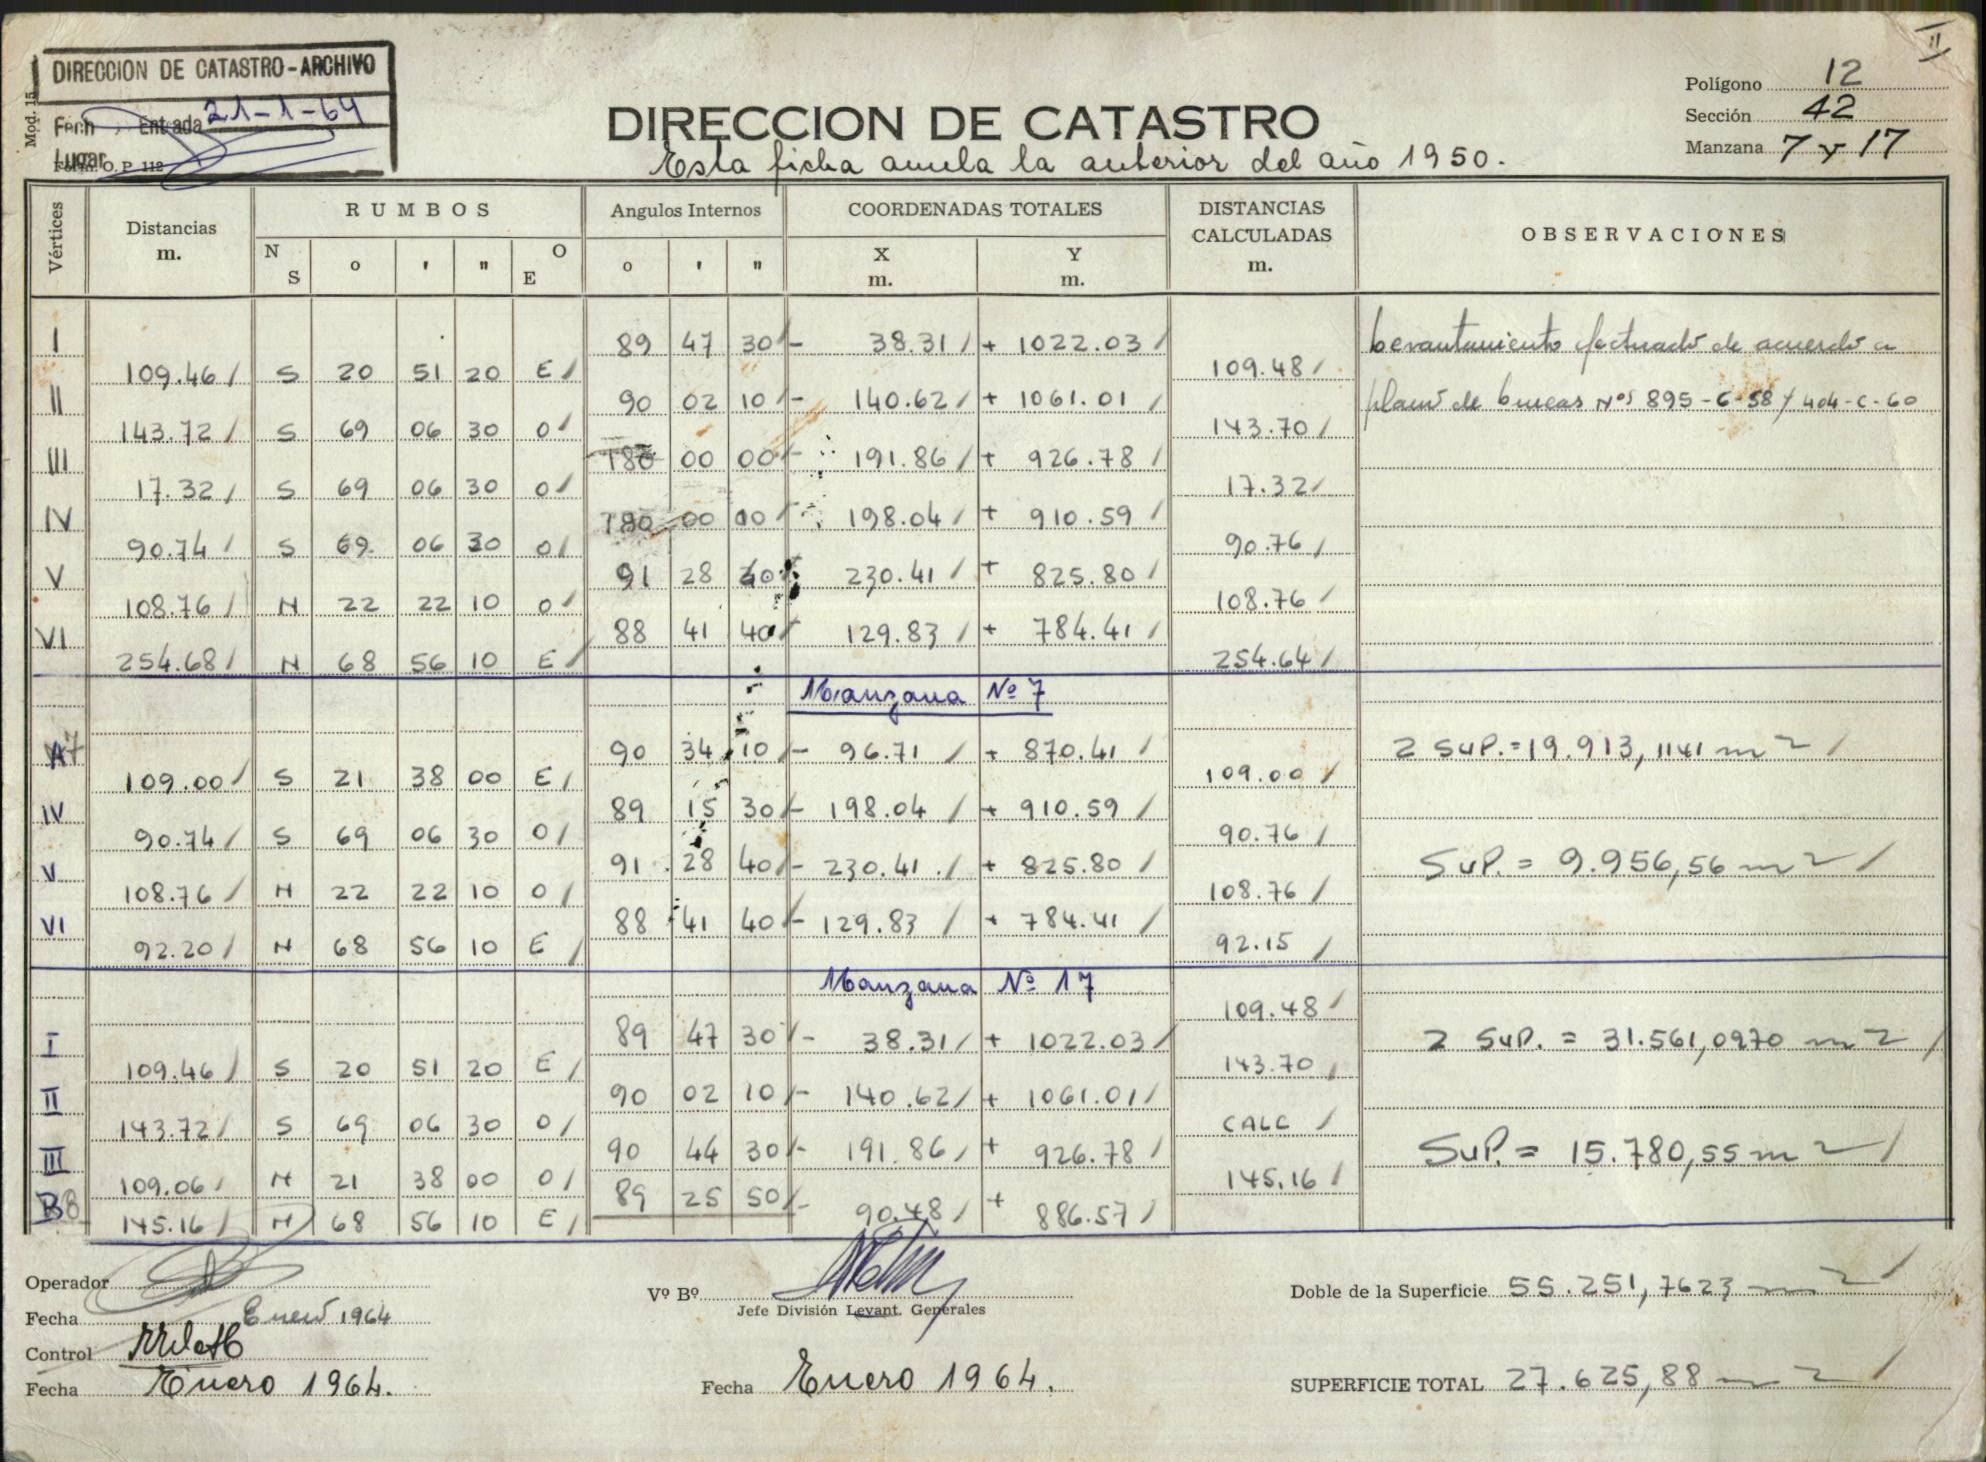 II
DIRECCION DE CATASTRO-ARCHIVO
Fech Entrada 21-1-64
Lugar
Mod. 15
Form. O. P. 112
DIRECCION DE CATASTRO
Esta ficha anula la anterior del año 1950.
Polígono 12
Sección 42
Manzana 7 y 17
Vértices Distancias m. RUMBOS Angulos Internos COORDENADAS TOTALES DISTANCIAS CALCULADAS m. OBSERVACIONES
N S o ' " O E o ' " X m. Y m.
I 89 47 30 - 38.31 + 1022.03 Levantamiento efectuado de acuerdo a
109.46 S 20 51 20 E 109.48
II 90 02 10 - 140.62 + 1061.01 plano de lineas Nos 895-C-58 y 404-C-60
143.72 S 69 06 30 O 143.70
III 180 00 00 - 191.86 + 926.78
17.32 S 69 06 30 O 17.32
IV 180 00 00 - 198.04 + 910.59
90.74 S 69 06 30 O 90.76
V 91 28 40 230.41 + 825.80
108.76 N 22 22 10 O 108.76
VI 88 41 40 129.83 + 784.41
254.68 N 68 56 10 E 254.64
Manzana Nº 7
A7 90 34 10 - 96.71 + 870.41 2 SUP. = 19.913,1141 m2
109.00 S 21 38 00 E 109.00
IV 89 15 30 - 198.04 + 910.59
90.74 S 69 06 30 O 90.76
V 91 28 40 - 230.41 + 825.80 SUP. = 9.956,56 m2
108.76 N 22 22 10 O 108.76
VI 88 41 40 - 129.83 + 784.41
92.20 N 68 56 10 E 92.15
Manzana Nº 17
109.48
I 89 47 30 - 38.31 + 1022.03 2 SUP. = 31.561,0970 m2
109.46 S 20 51 20 E 143.70
II 90 02 10 - 140.62 + 1061.01
143.72 S 69 06 30 O CALC
III 90 44 30 - 191.86 + 926.78 SUP. = 15.780,55 m2
109.06 N 21 38 00 O 145.16
B8 89 25 50 - 90.48 + 886.57
145.16 N 68 56 10 E
Operador
Fecha Enero 1964
Control
Fecha Enero 1964.
Vº Bº
Jefe División Levant. Generales
Fecha Enero 1964.
Doble de la Superficie 55.251,7623 m2
SUPERFICIE TOTAL 27.625,88 m2